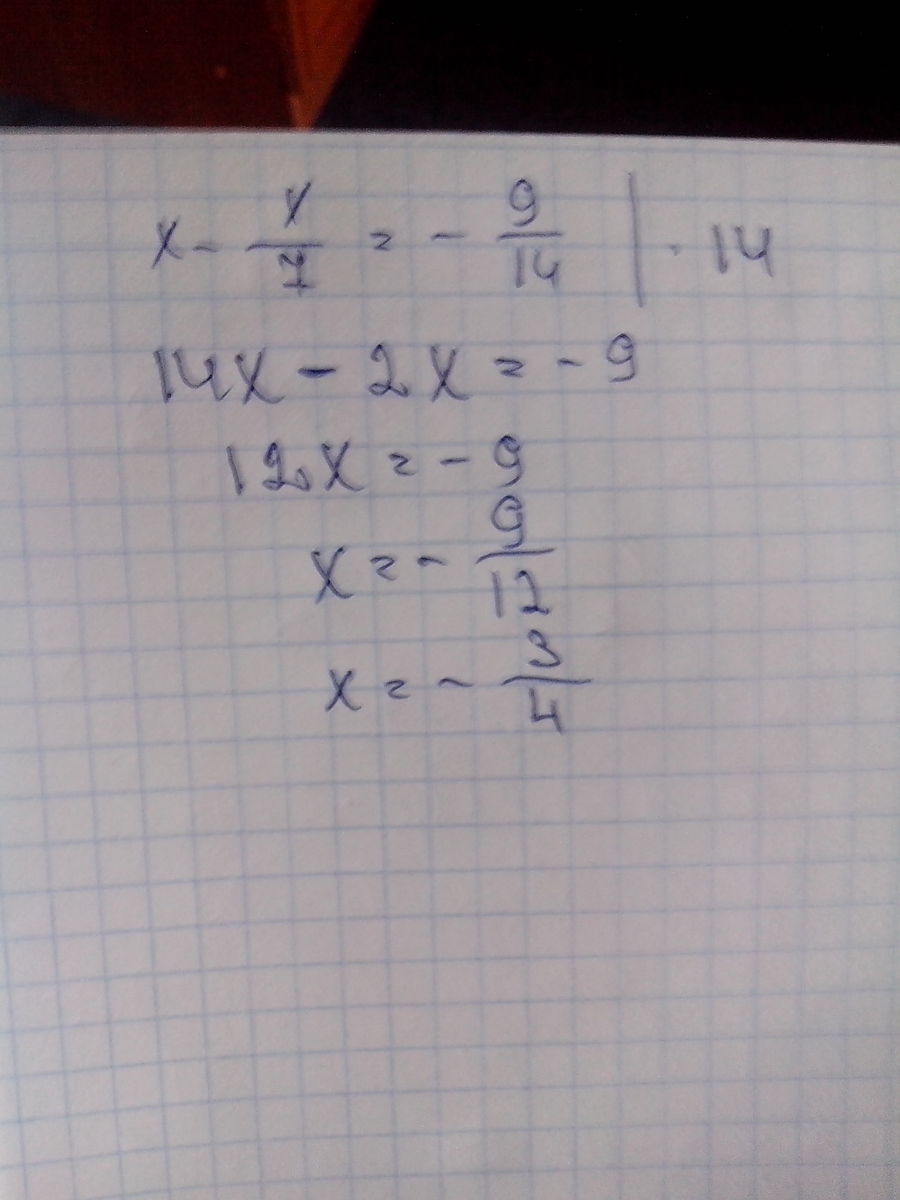 x - x/7 = - 9/14 | · 14
14x - 2x = - 9
12x = - 9
x = - 9/12
x = - 3/4